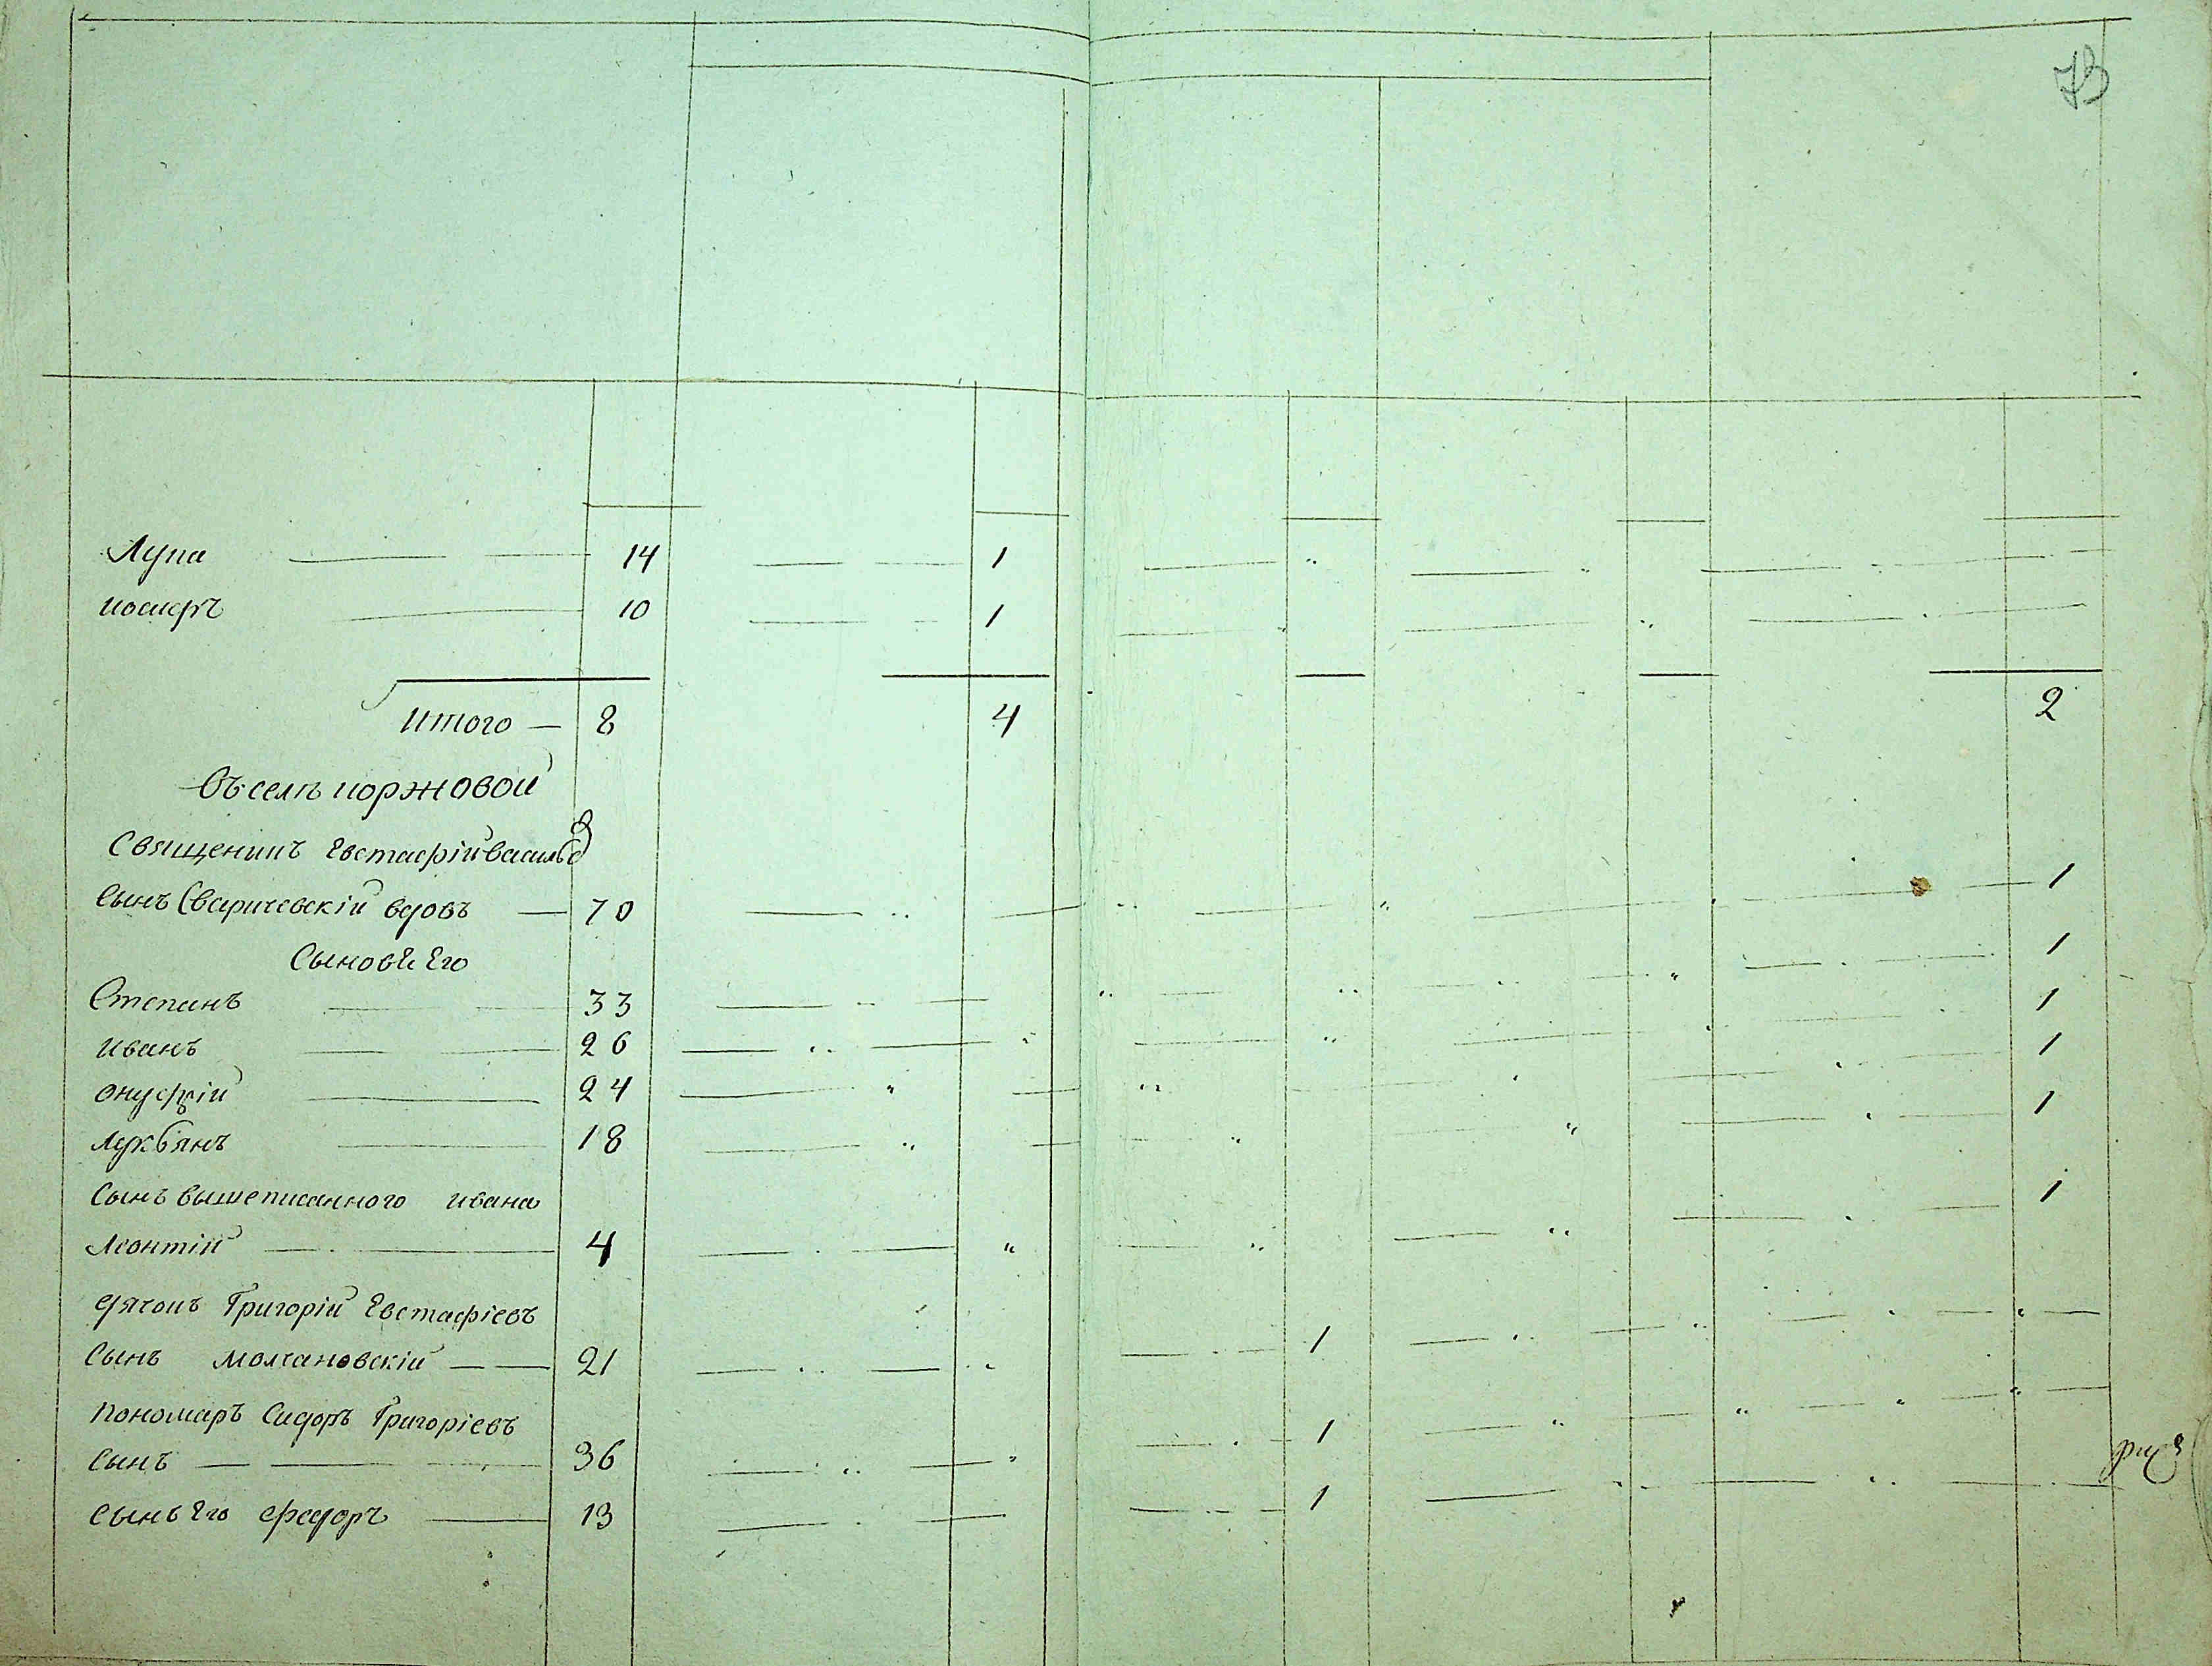 73
Лука 14 1
иосифъ 10 1
Итого — 8 4 2
въ селѣ коржовой
Священникъ Евстафій Васильевъ
Сынъ Сваричевскій вдовъ — 70 1
Сыновѣ Его
Степанъ 33 1
Иванъ 26 1
Онуфрій 24 1
Лукъянъ 18 1
Сынъ вышеписанного Ивана
Леонтій 4 1
дячокъ Григорій Евстафіевъ
Сынъ Молчановскій — 21 1
Пономаръ Сидоръ Григоріевъ
Сынъ — 36 1
Сынъ Его Федоръ — 13 1